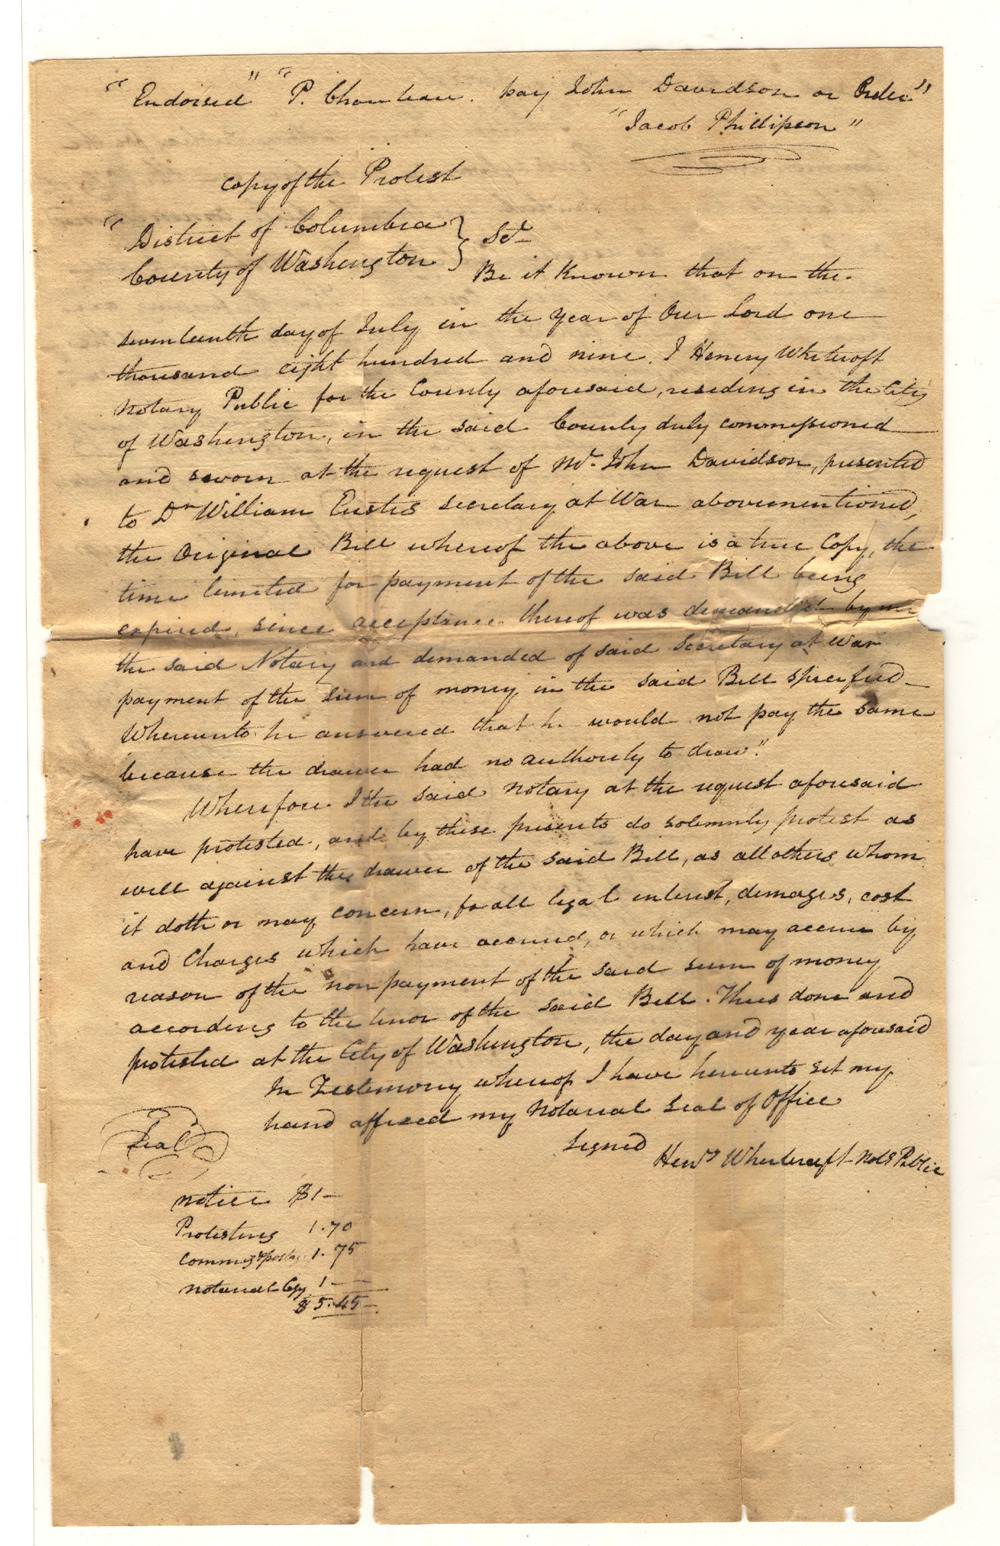 "Endorsed" "P. Chouteau. pay John Davidson or Order"
"Jacob Phillipson"
Copy of the Protest
"District of Columbia } Sct
County of Washington }
Be it Known that on the
seventeenth day of July in the Year of Our Lord one
thousand eight hundred and nine. I Henery Whitcroft
Notary Public for the County aforesaid, residing in the City
of Washington, in the said County duly commissioned
and sworn at the request of Mr. John Davidson, presented
to Dr William Eustis Secretary at War abovementioned,
the Original Bill whereof the above is a true Copy, the
time limited for payment of the said Bill being
expired, since acceptance thereof was demanded by me
the said Notary and demanded of said Secretary at War
payment of the Sum of money in the said Bill specified
Whereunto he answered that he would not pay the same
because the drawer had no authority to draw."
Wherefore I the said Notary at the request aforesaid
have protested, and by these presents do solemnly protest as
well against the drawer of the said Bill, as all others whom
it doth or may concern, for all legal interest, damages, cost
and Charges which have accrued, or which may accrue by
reason of the non payment of the said sum of money
according to the tenor of the said Bill. Thus done and
protested at the City of Washington, the day and year aforesaid
In Testimony whereof I have hereunto set my
hand affixed my Notarial Seal of Office
Seal
Signed Heny Whetcroft Noty Public
Notice $1–
Protesting 1.70
1.75
Notarial Copy 1–
$5.45–